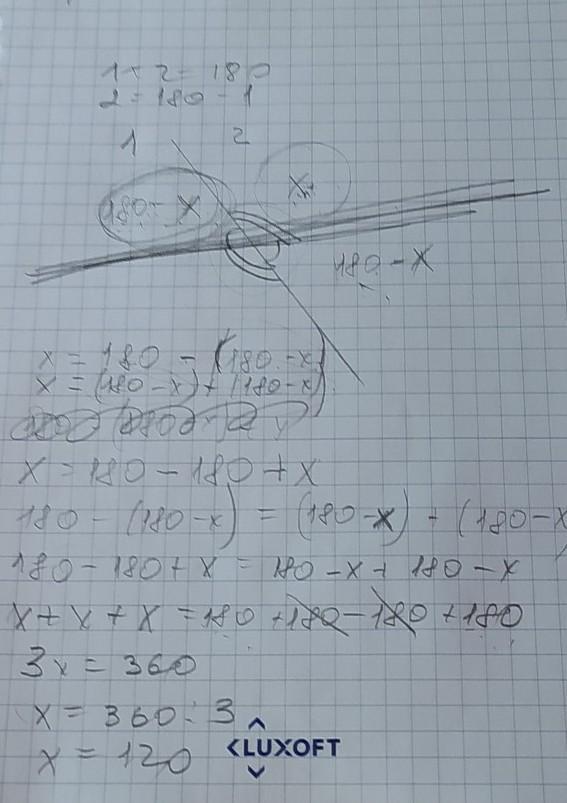 1 + 2 = 180
2 = 180 - 1
1 2
180 - X X
180 - X
x = 180 - (180 - x)
x = (180 - x) + (180 - x)
X = 180 - 180 + X
180 - (180 - x) = (180 - x) + (180 - x
180 - 180 + X = 180 - x + 180 - x
X + X + X = 180 + 180 - 180 + 180
3x = 360
x = 360 : 3
x = 120
<LUXOFT